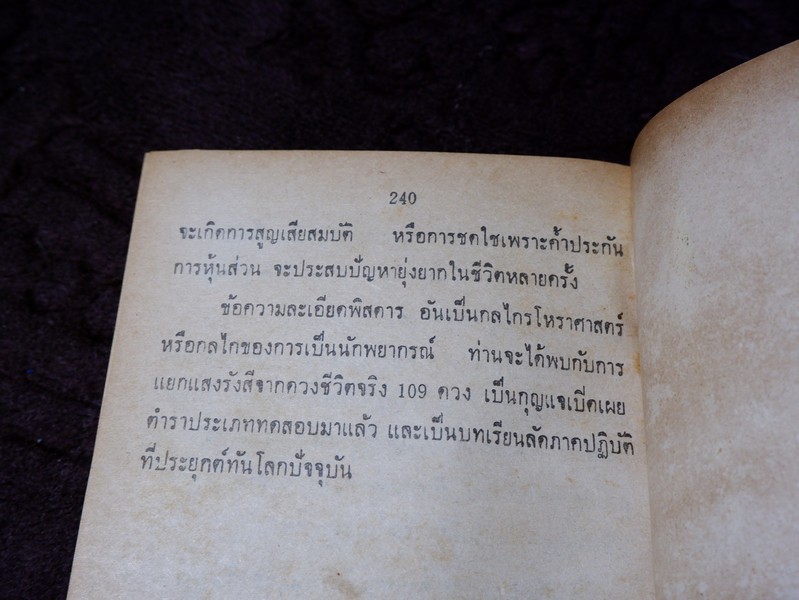 240
จะเกิดการสูญเสียสมบัติ หรือการชดใชเพราะค้ำประกัน
การหุ้นส่วน จะประสบปัญหายุ่งยากในชีวิตหลายครั้ง
ข้อความละเอียดพิสดาร อันเป็นกลไกรโหราศาสตร์
หรือกลไกของการเป็นนักพยากรณ์ ท่านจะได้พบกับการ
แยกแสงรังสีจากดวงชีวิตจริง 109 ดวง เป็นกุญแจเบิดเผย
ตำราประเภททดสอบมาแล้ว และเป็นบทเรียนลัดภาคปฏิบัติ
ที่ประยุกต์ทันโลกปัจจุบัน